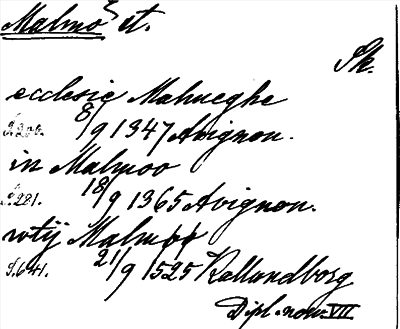 Malmö st.
Sk.
ecclesie Malmeghe
8/9 1347 Avignon.
in Malmoo
S. 281. 18/9 1365 Avignon.
wtij Malmøø
S. 641. 21/9 1525 Kallundborg
Dipl. nov. VII